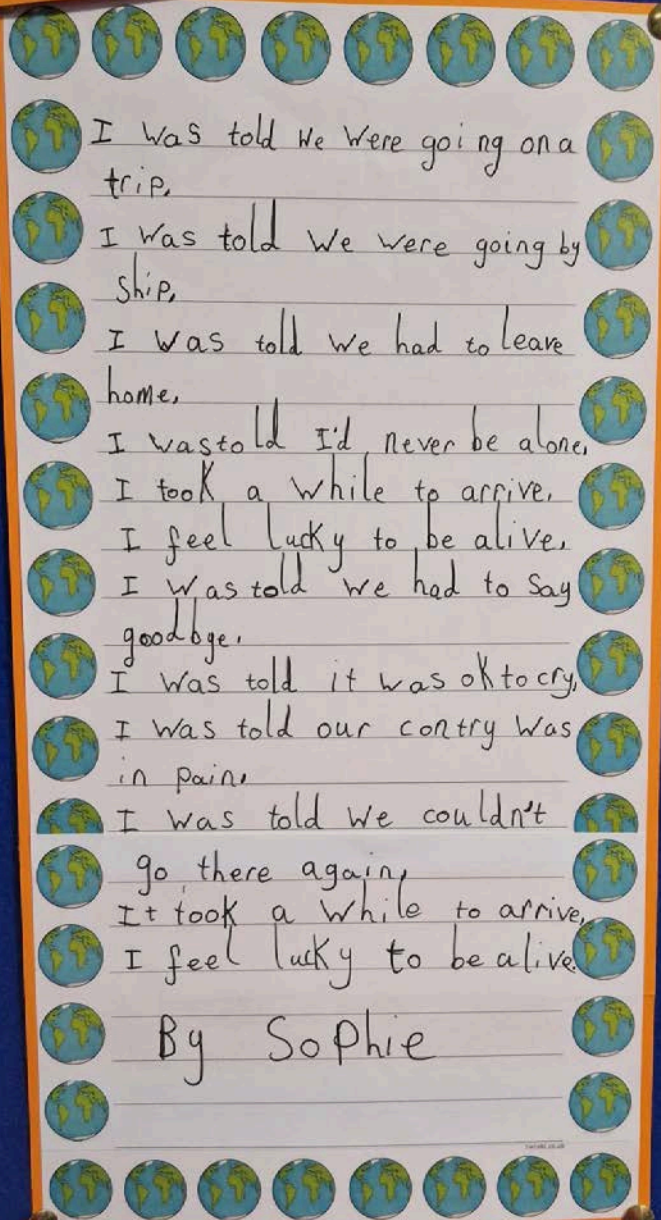 I was told we were going on a
trip,
I was told we were going by
ship,
I was told we had to leave
home,
I was told I'd never be alone,
I took a while to arrive,
I feel lucky to be alive,
I was told we had to say
goodbge,
I was told it was ok to cry,
I was told our contry was
in pain,
I was told we couldn't
go there again,
It took a while to arrive,
I feel lucky to be alive.
By Sophie